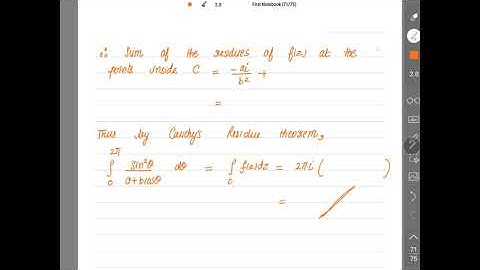 2.8
First Notebook (71/75)
∴ Sum of the residues of f(z) at the
points inside C = -ai/b² +
=
Thus by Cauchy's Residue theorem,
∫₀^2π sin²θ/(a+bcosθ) dθ = ∫_C f(z)dz = 2πi ( )
=
2.8
71
75